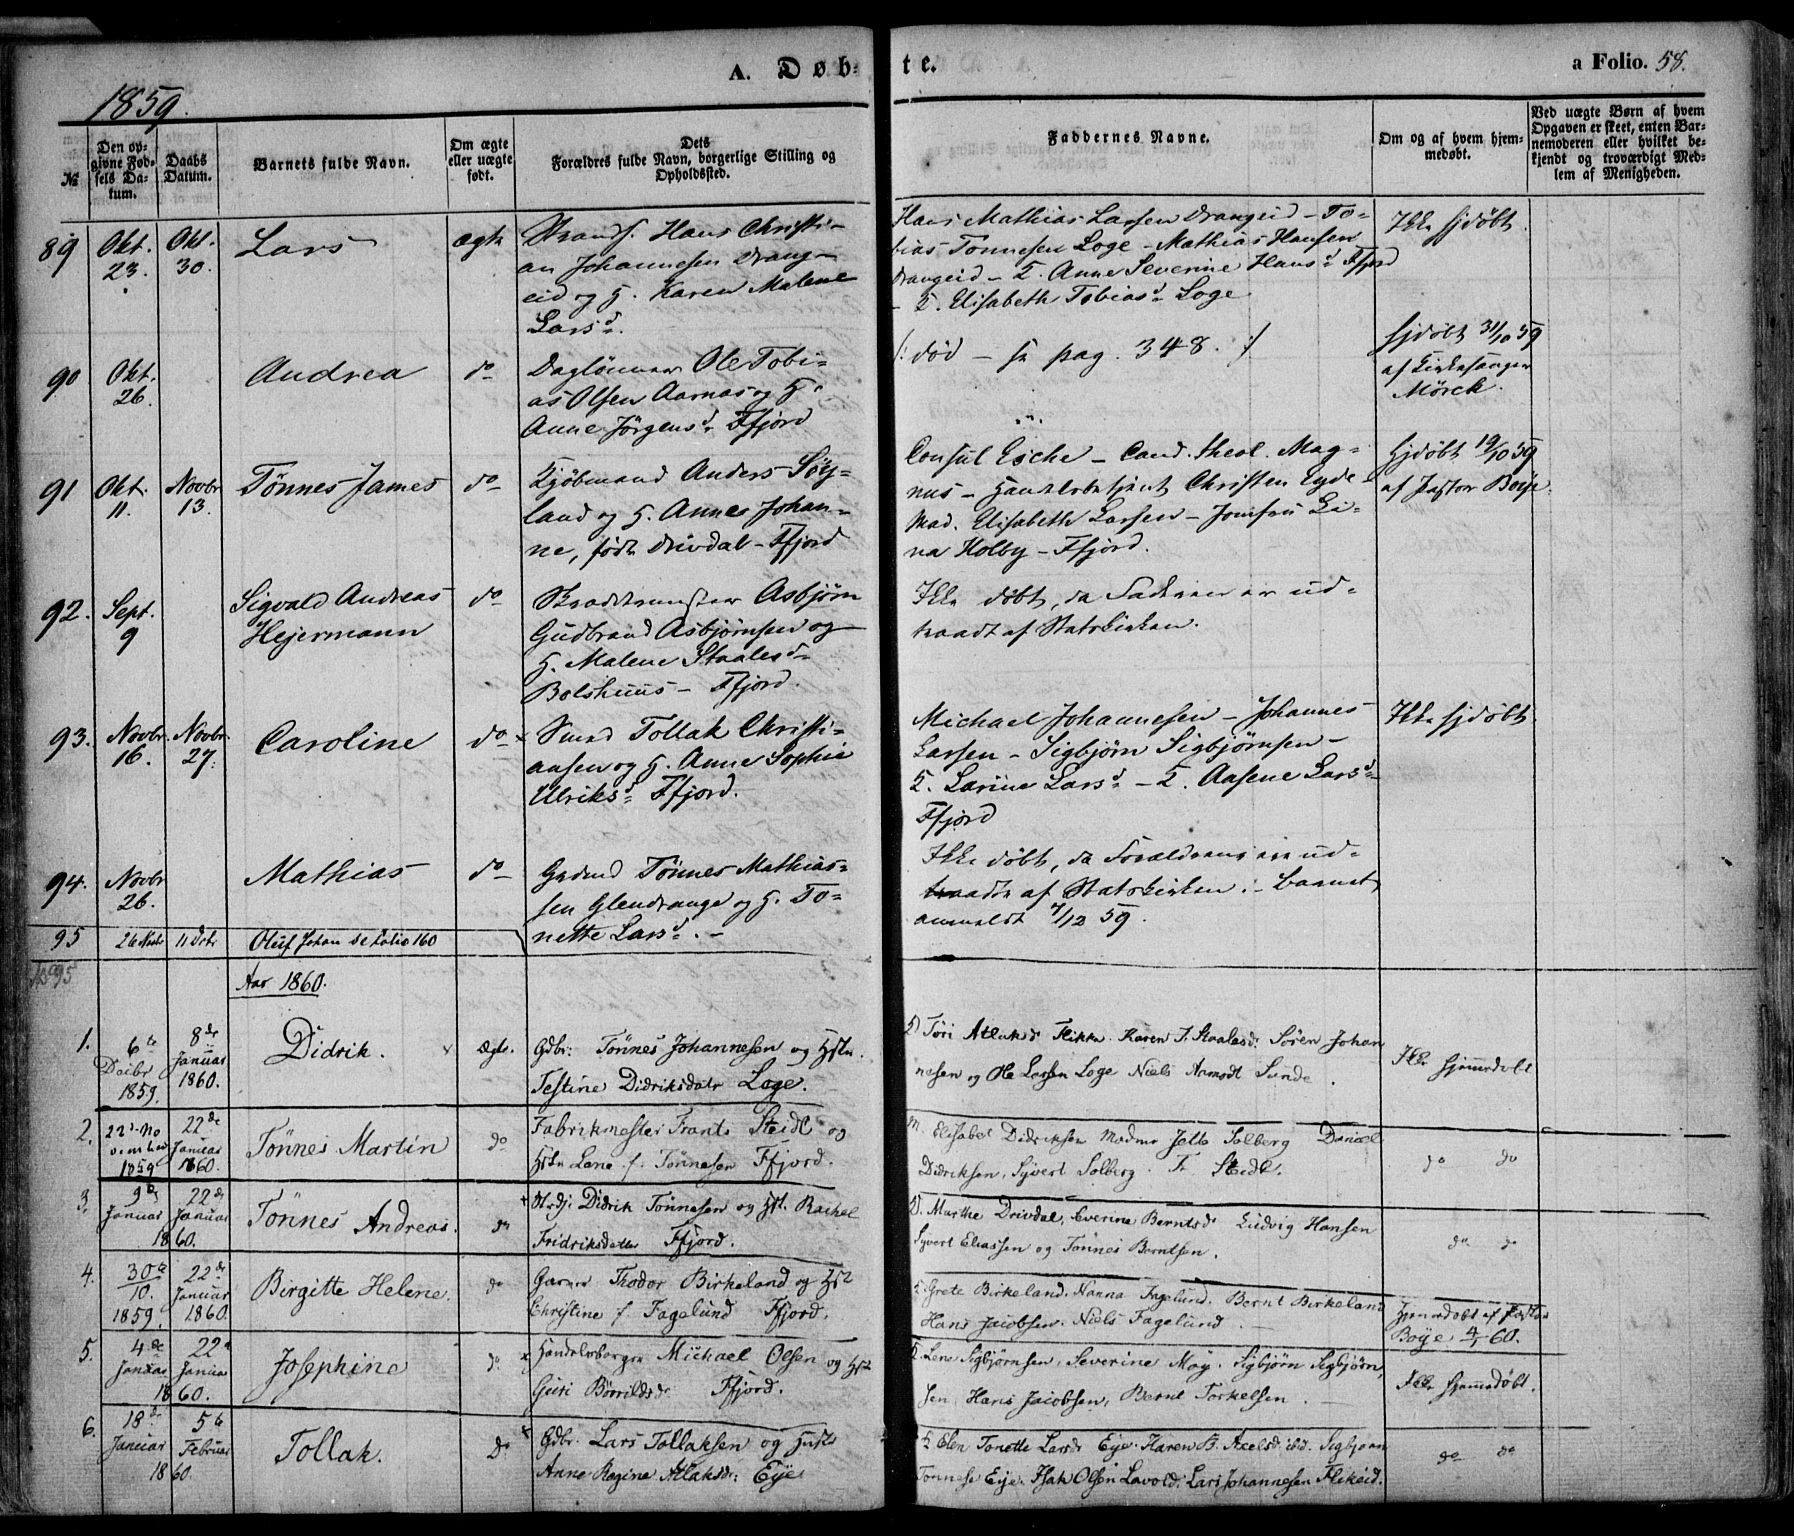 A. Døb-te.
a Folio. 58.
1859.
№
Den opgivne Fødsels Datum.
Daabs Datum.
Barnets fulde Navn.
Om ægte eller uægte født.
Dets Forældres fulde Navn, borgerlige Stilling og Opholdssted.
Faddernes Navne.
Om og af hvem hjemmedøbt.
Ved uægte Børn af hvem Opgaven er skeet, enten Barnemoderen eller hvilket bekjendt og troværdigt Medlem af Menigheden.
89 Okt. 23. Okt. 30. Lars ægte
Strands. Hans Christi-
an Johannesen Drang-
eid og H. Karen Malene
Larsd.
Hans Mathias Larsen Drangeid - To-
bias Tønnesen Loge - Mathias Hansen
Drangeid - T. Anne Severine Hansd. Ffjord
- T. Elisabeth Tobiasd. Loge
Ikke hjdøbt.
90 Okt. 26. Andrea do
Daglønner Ole Tobi-
as Olsen Aarnas og H.
Anne Jørgensd. Ffjord
/: død - se pag. 348. :/
Hjdøbt 31/10 59
af Kirkesanger
Mörck.
91 Okt. 11. Novbr 13. Tønnes James do
Kjøbmand Anders Søy-
land og H. Annes Johan-
ne, født Drivdal - Ffjord
Consul Esche - Cand. theol. Mag-
nus - Handelsbetjent Christen Eyde
Mad. Elisabeth Larsen - Jomfru Li-
na Holby - Ffjord.
Hjdøbt 19/10 59
af Pastor Boye.
92. Sept. 9 Sigvald Andreas
Hejermann do
Asbjørn
Gudbrand Asbjørnsen og
H. Malene Staalesd.
Bolshuus - Ffjord.
Ikke døbt, da Faderen er ud-
traadt af Statskirken.
93. Novbr. 16. Novbr. 27. Caroline do
Smed Tollak Christi-
ansen og H. Anne Sophie
Ulriksd. Ffjord.
Michael Johannesen - Johannes
Larsen - Sigbjørn Sigbjørnsen -
T. Larine Larsd. - T. Aasene Larsd.
Ffjord
Ikke hjdøbt.
94. Novbr 26. Mathias do
Grdmd Tønnes Mathias-
sen Glendrange og H. To-
nette Larsd. -
Ikke døbt, da Forældrene ere ud-
traadte af Statskirken. - Barnet
anmeldt 7/12 59.
95 26 Novbr 11 Dcbr Oluf Johan se Folio 160
№ 95
Aar 1860.
1. 6te Decbr 1859. 8de Januar 1860. Didrik. Ægte.
Gdbr: Tønnes Johannesen og Hstr.
Testine Didriksdatr Loge.
Tøri Atlaksd Flikka. Karen T. Staalesd: Søren Johan
nesen og Ole Larsen Loge Niels Aamodt Sunde.
Ikke hjemmedøbt
2. 22d November 1859 22de Januar 1860. Tønnes Martin do
Fabrikmester Frants Steidl og
Hstr Lene f. Tønnesen Ffjord.
M. Elisabet Didriksen Madme Jette Solberg Daniel
Didriksen, Syvert Solberg. F. Steidl.
do do
3. 9de Januar 22de Januar 1860. Tønnes Andreas. do
Didrik Tønnesen og Hst. Rachel
Fridriksdatter Ffjord.
D. Marthe Drivdal, Everine Berntsd. Ludvig Hansen
Syvert Eliassen og Tønnes Berntsen.
do do
4. 30te 10. 1859. 22de Januar 1860. Birgitte Helene. do
Garver Thodor Birkeland og Hst
Christine f. Fagelund Ffjord.
Grete Birkeland. Nanna Fagelund. Bernt Birkeland
Hans Jacobsen. Niels Fagelund.
Hjemmedøbt af Pastor
Boye 4/1 60.
5. 4de Januar 22d Januar 1860. Josephine do
Handelsborger Michael Olsen og Hst
Guri Børrildsd: Ffjord.
Lene Sigbjørnsen, Severine Moy. Sigbjørn Sigbjørn-
sen, Hans Jacobsen, Bernt Torkelsen
Ikke hjemmedøbt.
6. 18de Januar 5te Februar 1860. Tollak. do
Gdbr: Lars Tollaksen og Hustr
Anne Regine Atlaksdr: Eye
Elen Tonette Larsdr Eye. Karen B. Axelsd ibid. Sigbjørn
Tønnese Eye. Isak Olsen Lavold. Lars Johannesen Flikeid.
do do